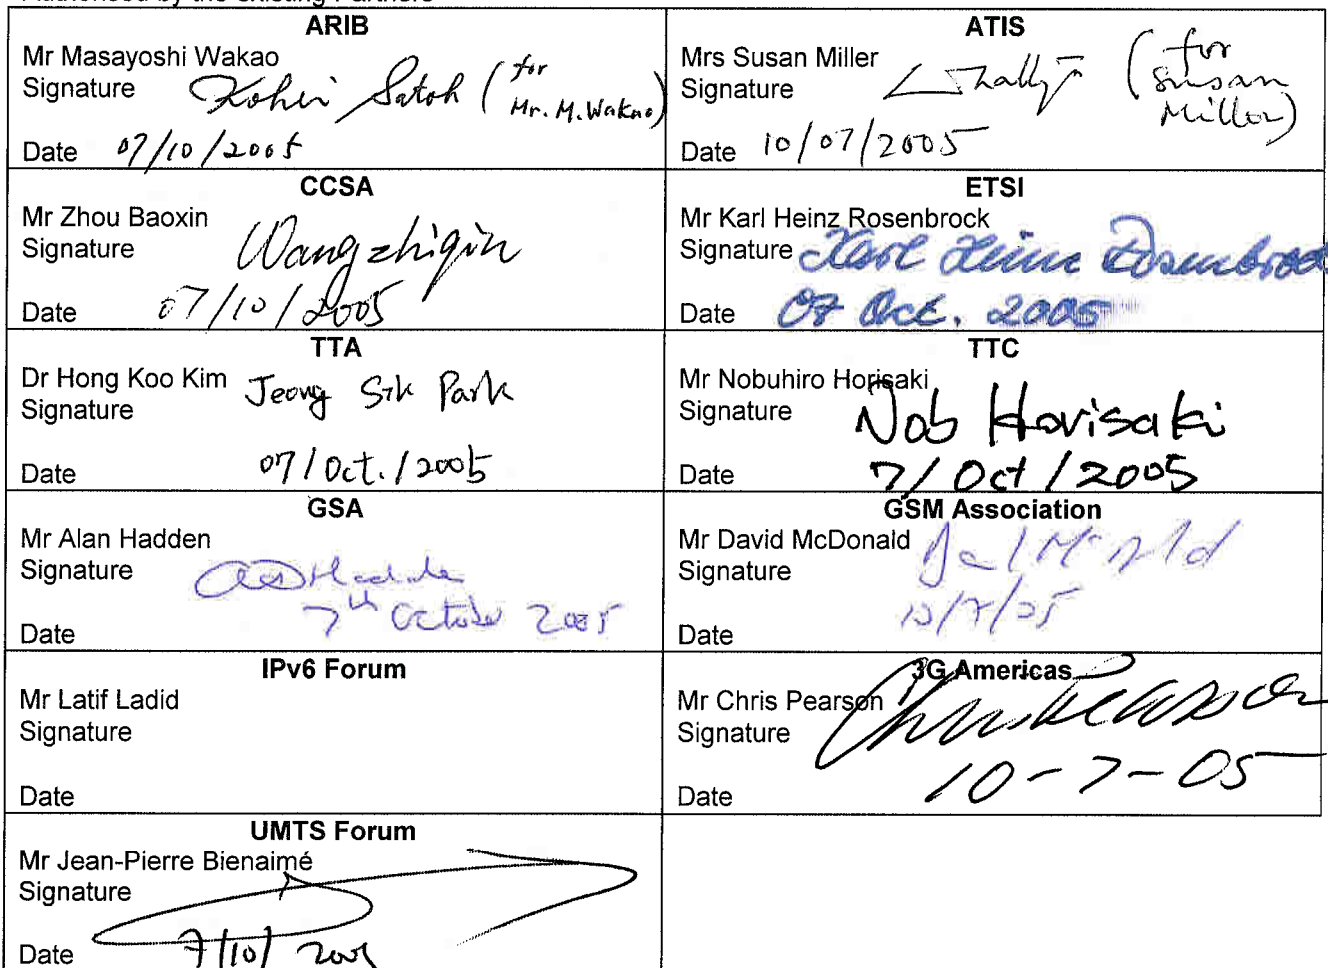 Authorised by the existing Partners
ARIB
Mr Masayoshi Wakao
Signature Kohei Satoh (for Mr. M. Wakao)
Date 07/10/2005
ATIS
Mrs Susan Miller
Signature (for Susan Miller)
Date 10/07/2005
CCSA
Mr Zhou Baoxin
Signature Wangzhiqin
Date 07/10/2005
ETSI
Mr Karl Heinz Rosenbrock
Signature Karl Heinz Rosenbrock
Date 07 Oct. 2005
TTA
Dr Hong Koo Kim
Signature Jeong Sik Park
Date 07/Oct./2005
TTC
Mr Nobuhiro Horisaki
Signature Nob Horisaki
Date 7/Oct/2005
GSA
Mr Alan Hadden
Signature
7th October 2005
Date
GSM Association
Mr David McDonald
Signature
10/7/05
Date
IPv6 Forum
Mr Latif Ladid
Signature
Date
3G Americas
Mr Chris Pearson
Signature Chris Pearson
Date 10-7-05
UMTS Forum
Mr Jean-Pierre Bienaimé
Signature
Date 7/10/2005